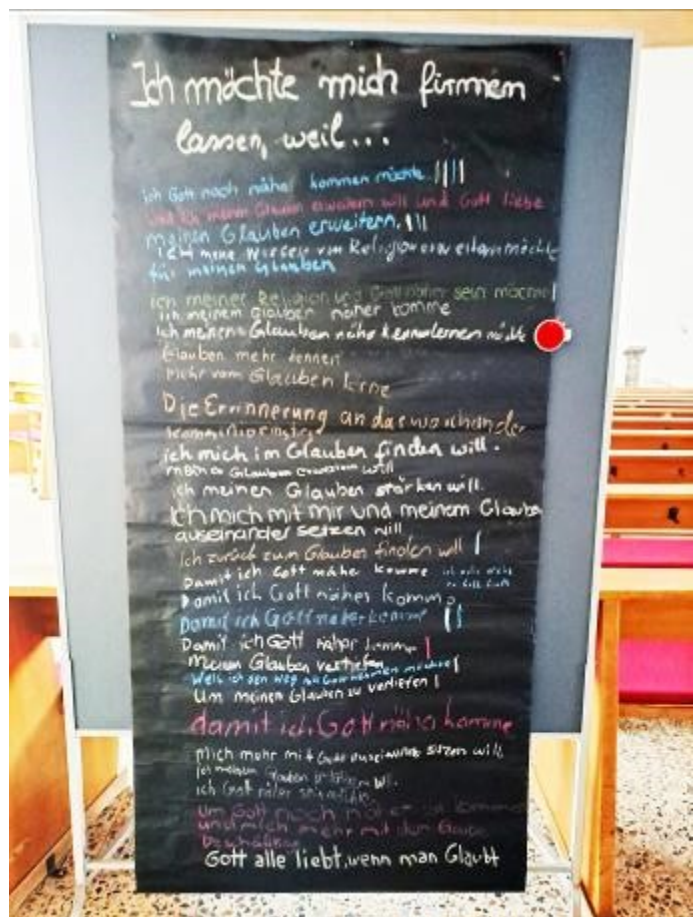 Ich möchte mich firmen
lassen, weil...
ich Gott noch näher kommen möchte.
und ich meinen Glauben erweitern will und Gott liebe
meinen Glauben erweitern.
ich mein Wissen von Religion erweitern möchte
für meinen Glauben
ich meiner Religion und Gott näher sein möchte
ich meinem Glauben näher komme
ich meinen Glauben näher kennenlernen möchte
Glauben mehr kennen
mehr vom Glauben lerne
Die Erinnerung an das
ich mich im Glauben finden will.
Glauben will
ich meinen Glauben stärken will.
Ich mich mit mir und meinem Glauben
auseinander setzen will
Ich zurück zum Glauben finden will
Damit ich Gott nähe komme
Damit ich Gott näher komme
Damit ich Gott näher komme
Damit ich Gott näher komme
Meinen Glauben vertiefen
Weil ich den Weg mit Gott möchte
Um meinen Glauben zu vertiefen
damit ich Gott näher komme
Mich mehr mit Gott will
Ich meinen Glauben will.
ich Gott näher sein möchte
Um Gott noch näher zu kommen
und mich mehr mit dem
Gott alle liebt, wenn man Glaubt